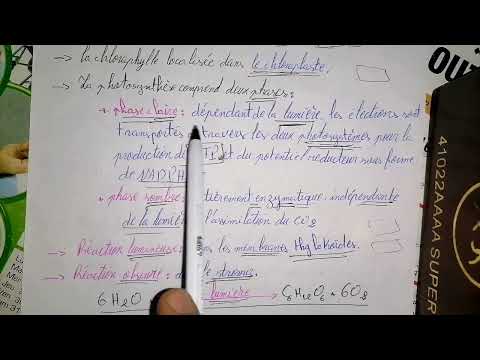 → la chlorophylle localisée dans le chloroplaste.
→ La photosynthèse comprend deux phases:
• phase claire: dépendant de la lumière, les électrons sont
transportés à travers les deux photosystèmes pour la
production d' et du potentiel réducteur sous forme
de NADPH
• phase sombre: enzymatique, indépendante
de la lumière l'assimilation du CO2
→ Réaction lumineuse: les membranes thylakoïdes.
→ Réaction obscure: le stroma.
6H2O lumière → C6H12O6 + 6O2
OU
41022AAAA SUPER